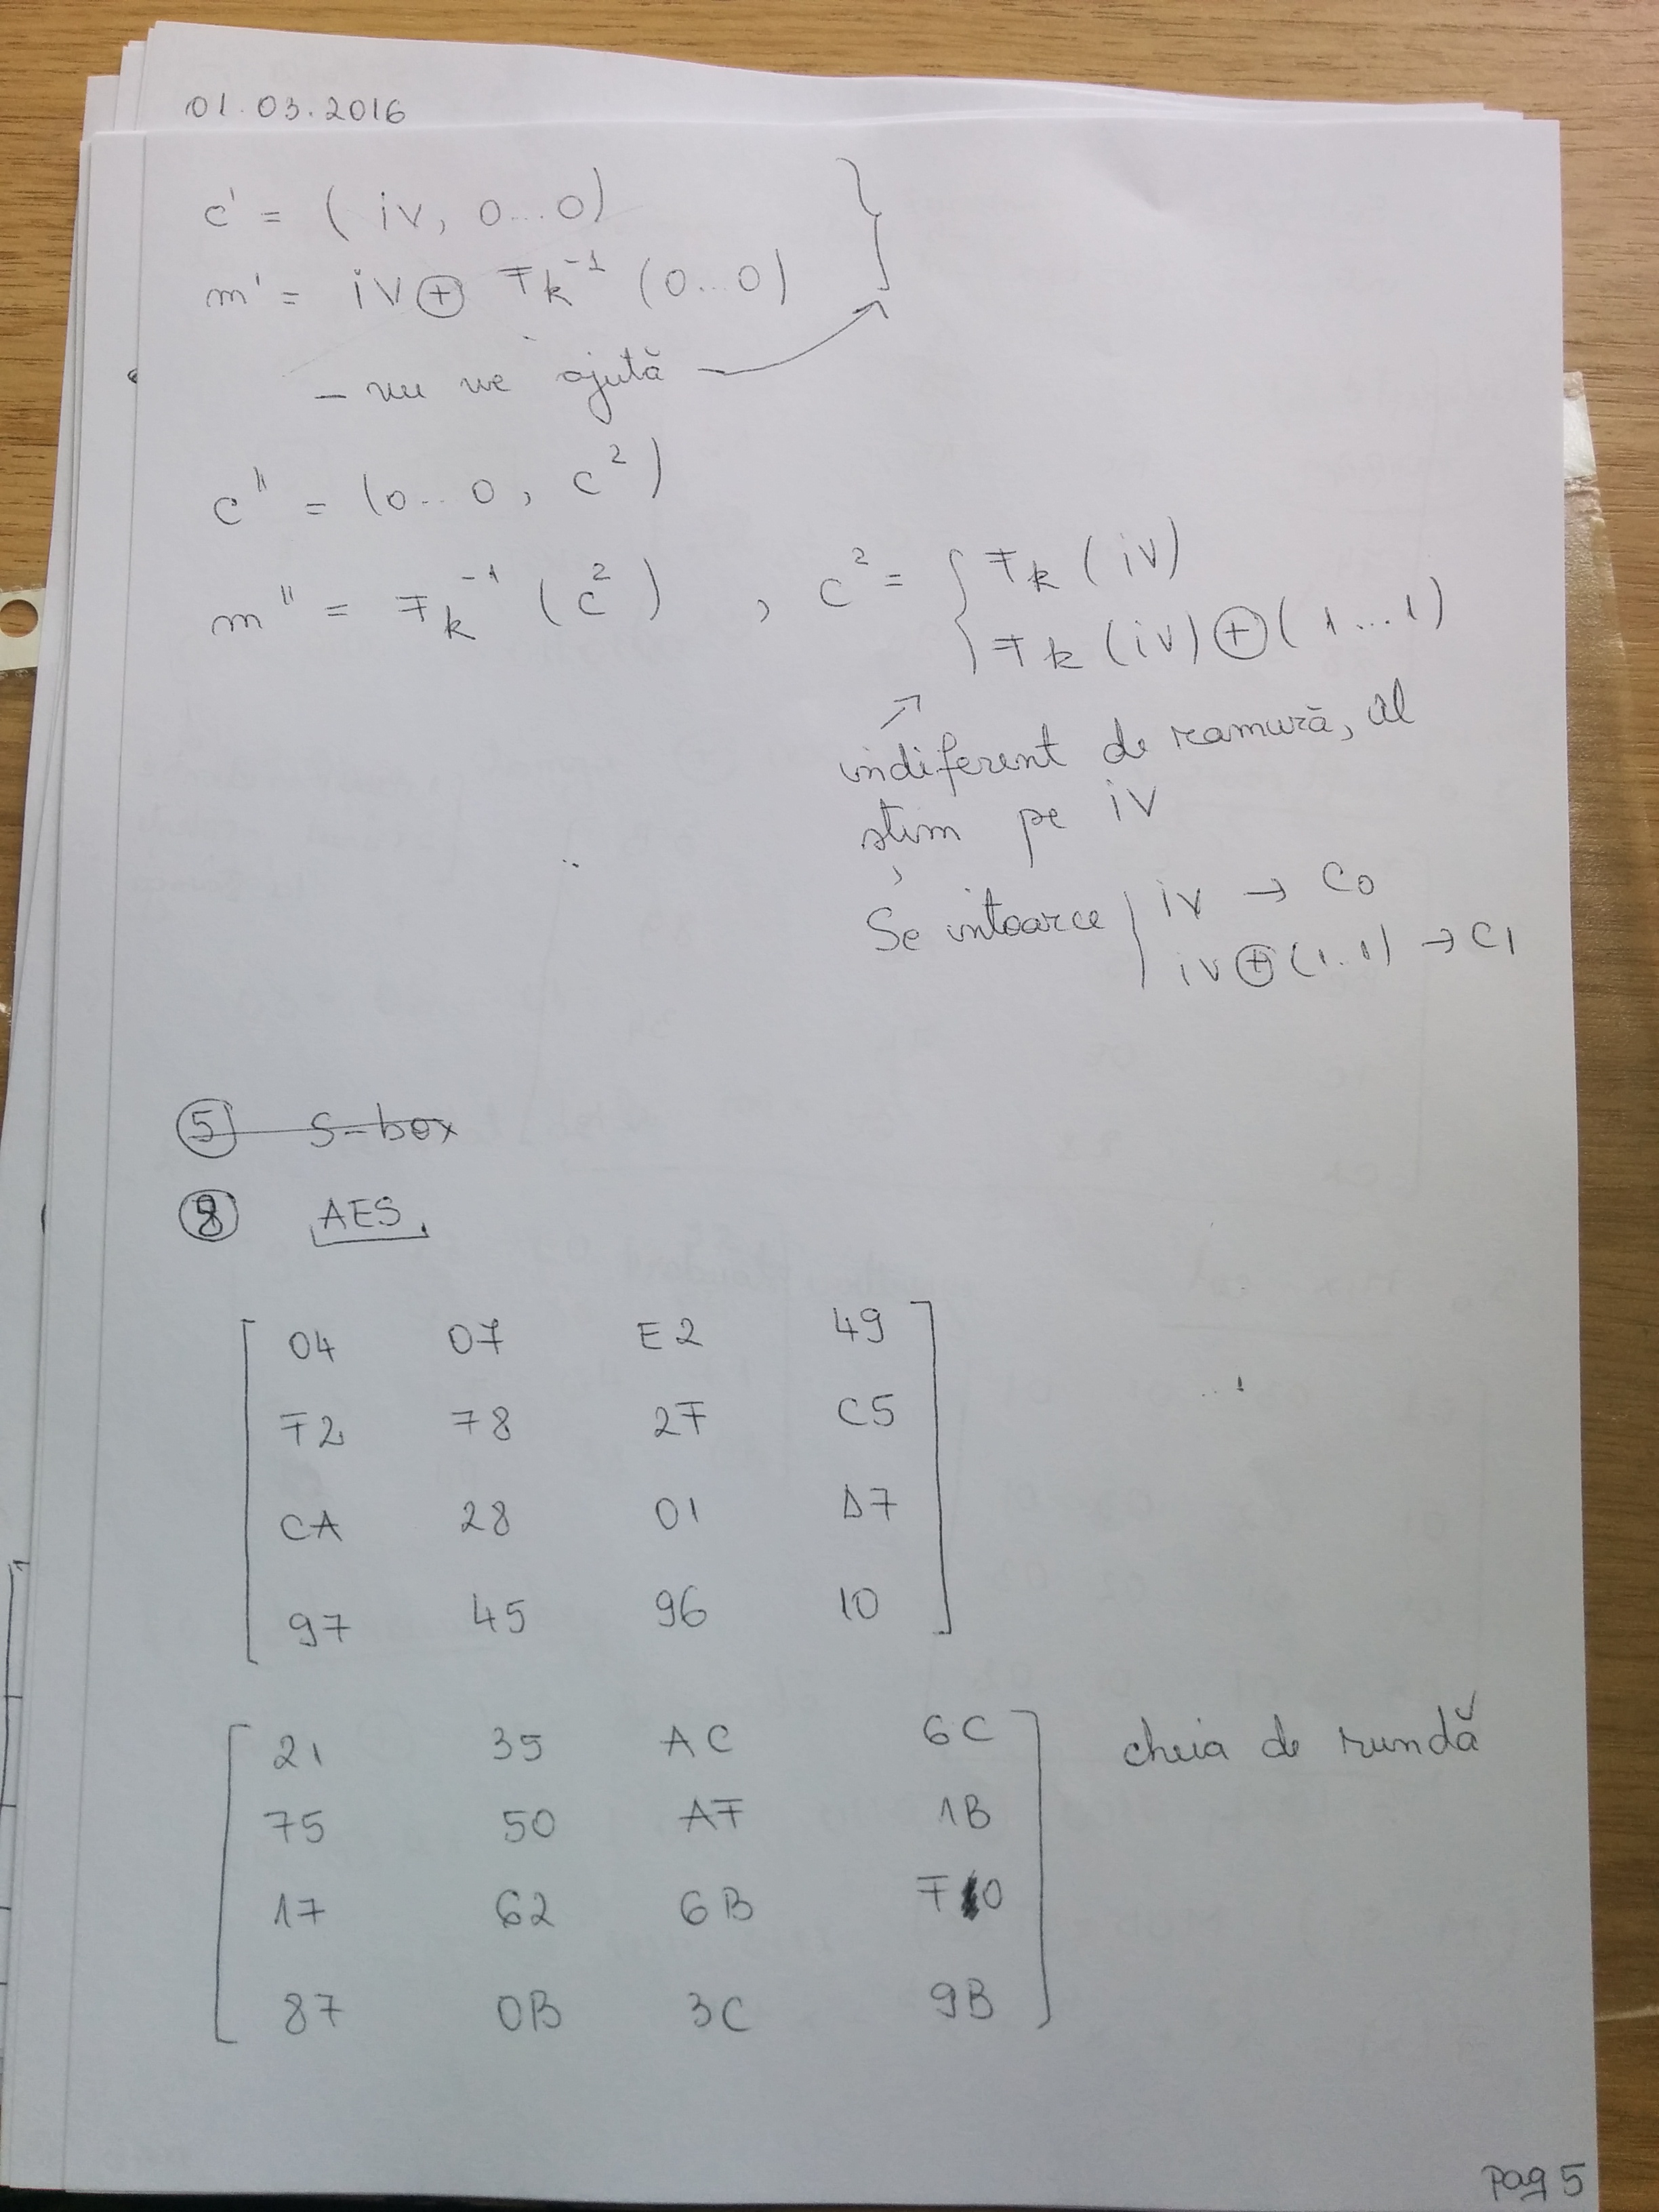 01.03.2016
c' = (iv, 0...0)
m' = iv ⊕ F_k^-1 (0...0)
- nu ne ajută
c'' = (0...0, c^2)
m'' = F_k^-1 (c^2) , c^2 = { F_k (iv)
F_k (iv) ⊕ (1...1)
indiferent de ramură, îl
știm pe iv
Se întoarce { iv → C0
iv ⊕ (1..1) → C1
5 S-box
8 AES.
04 07 E2 49
F2 78 2F C5
CA 28 01 D7
97 45 96 10
21 35 AC 6C cheia de rundă
75 50 AF 1B
17 62 6B F0
87 0B 3C 9B
pag 5